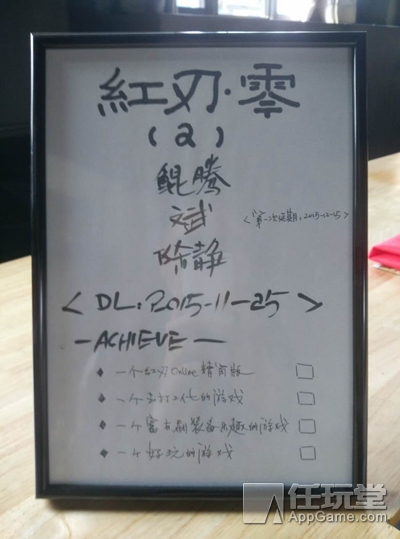 紅刃·零
(2)
鲲腾
斌
陈静
<第一次延期:2015-12-15>
<DL:2015-11-25>
—ACHIEVE—
◆ 一个红刃Online精简版
◆ 一个予打工化的游戏
◆ 一个富有刷装备乐趣的游戏
◆ 一个好玩的游戏
任玩堂
AppGame.com